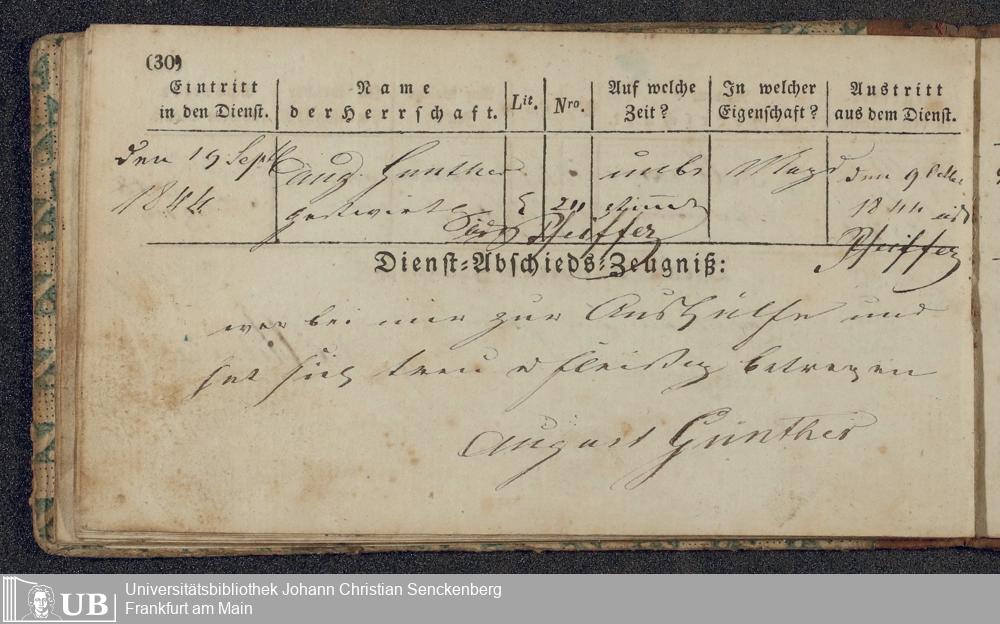 (30)
Eintritt in den Dienst.
Name der Herrschaft.
Lit.
Nro.
Auf welche Zeit?
In welcher Eigenschaft?
Austritt aus dem Dienst.
den 19 Sept
1844
Aug. Gunther
gastwirth
E
211
unbe
stimmt
Magd
den 9
1844
Pfeiffer
Pfeiffer
Dienst-Abschieds-Zeugniß:
war bei mir zur Aushülfe und
hat sich treu & fleißig betragen
August Gunther
UB
Universitätsbibliothek Johann Christian Senckenberg
Frankfurt am Main